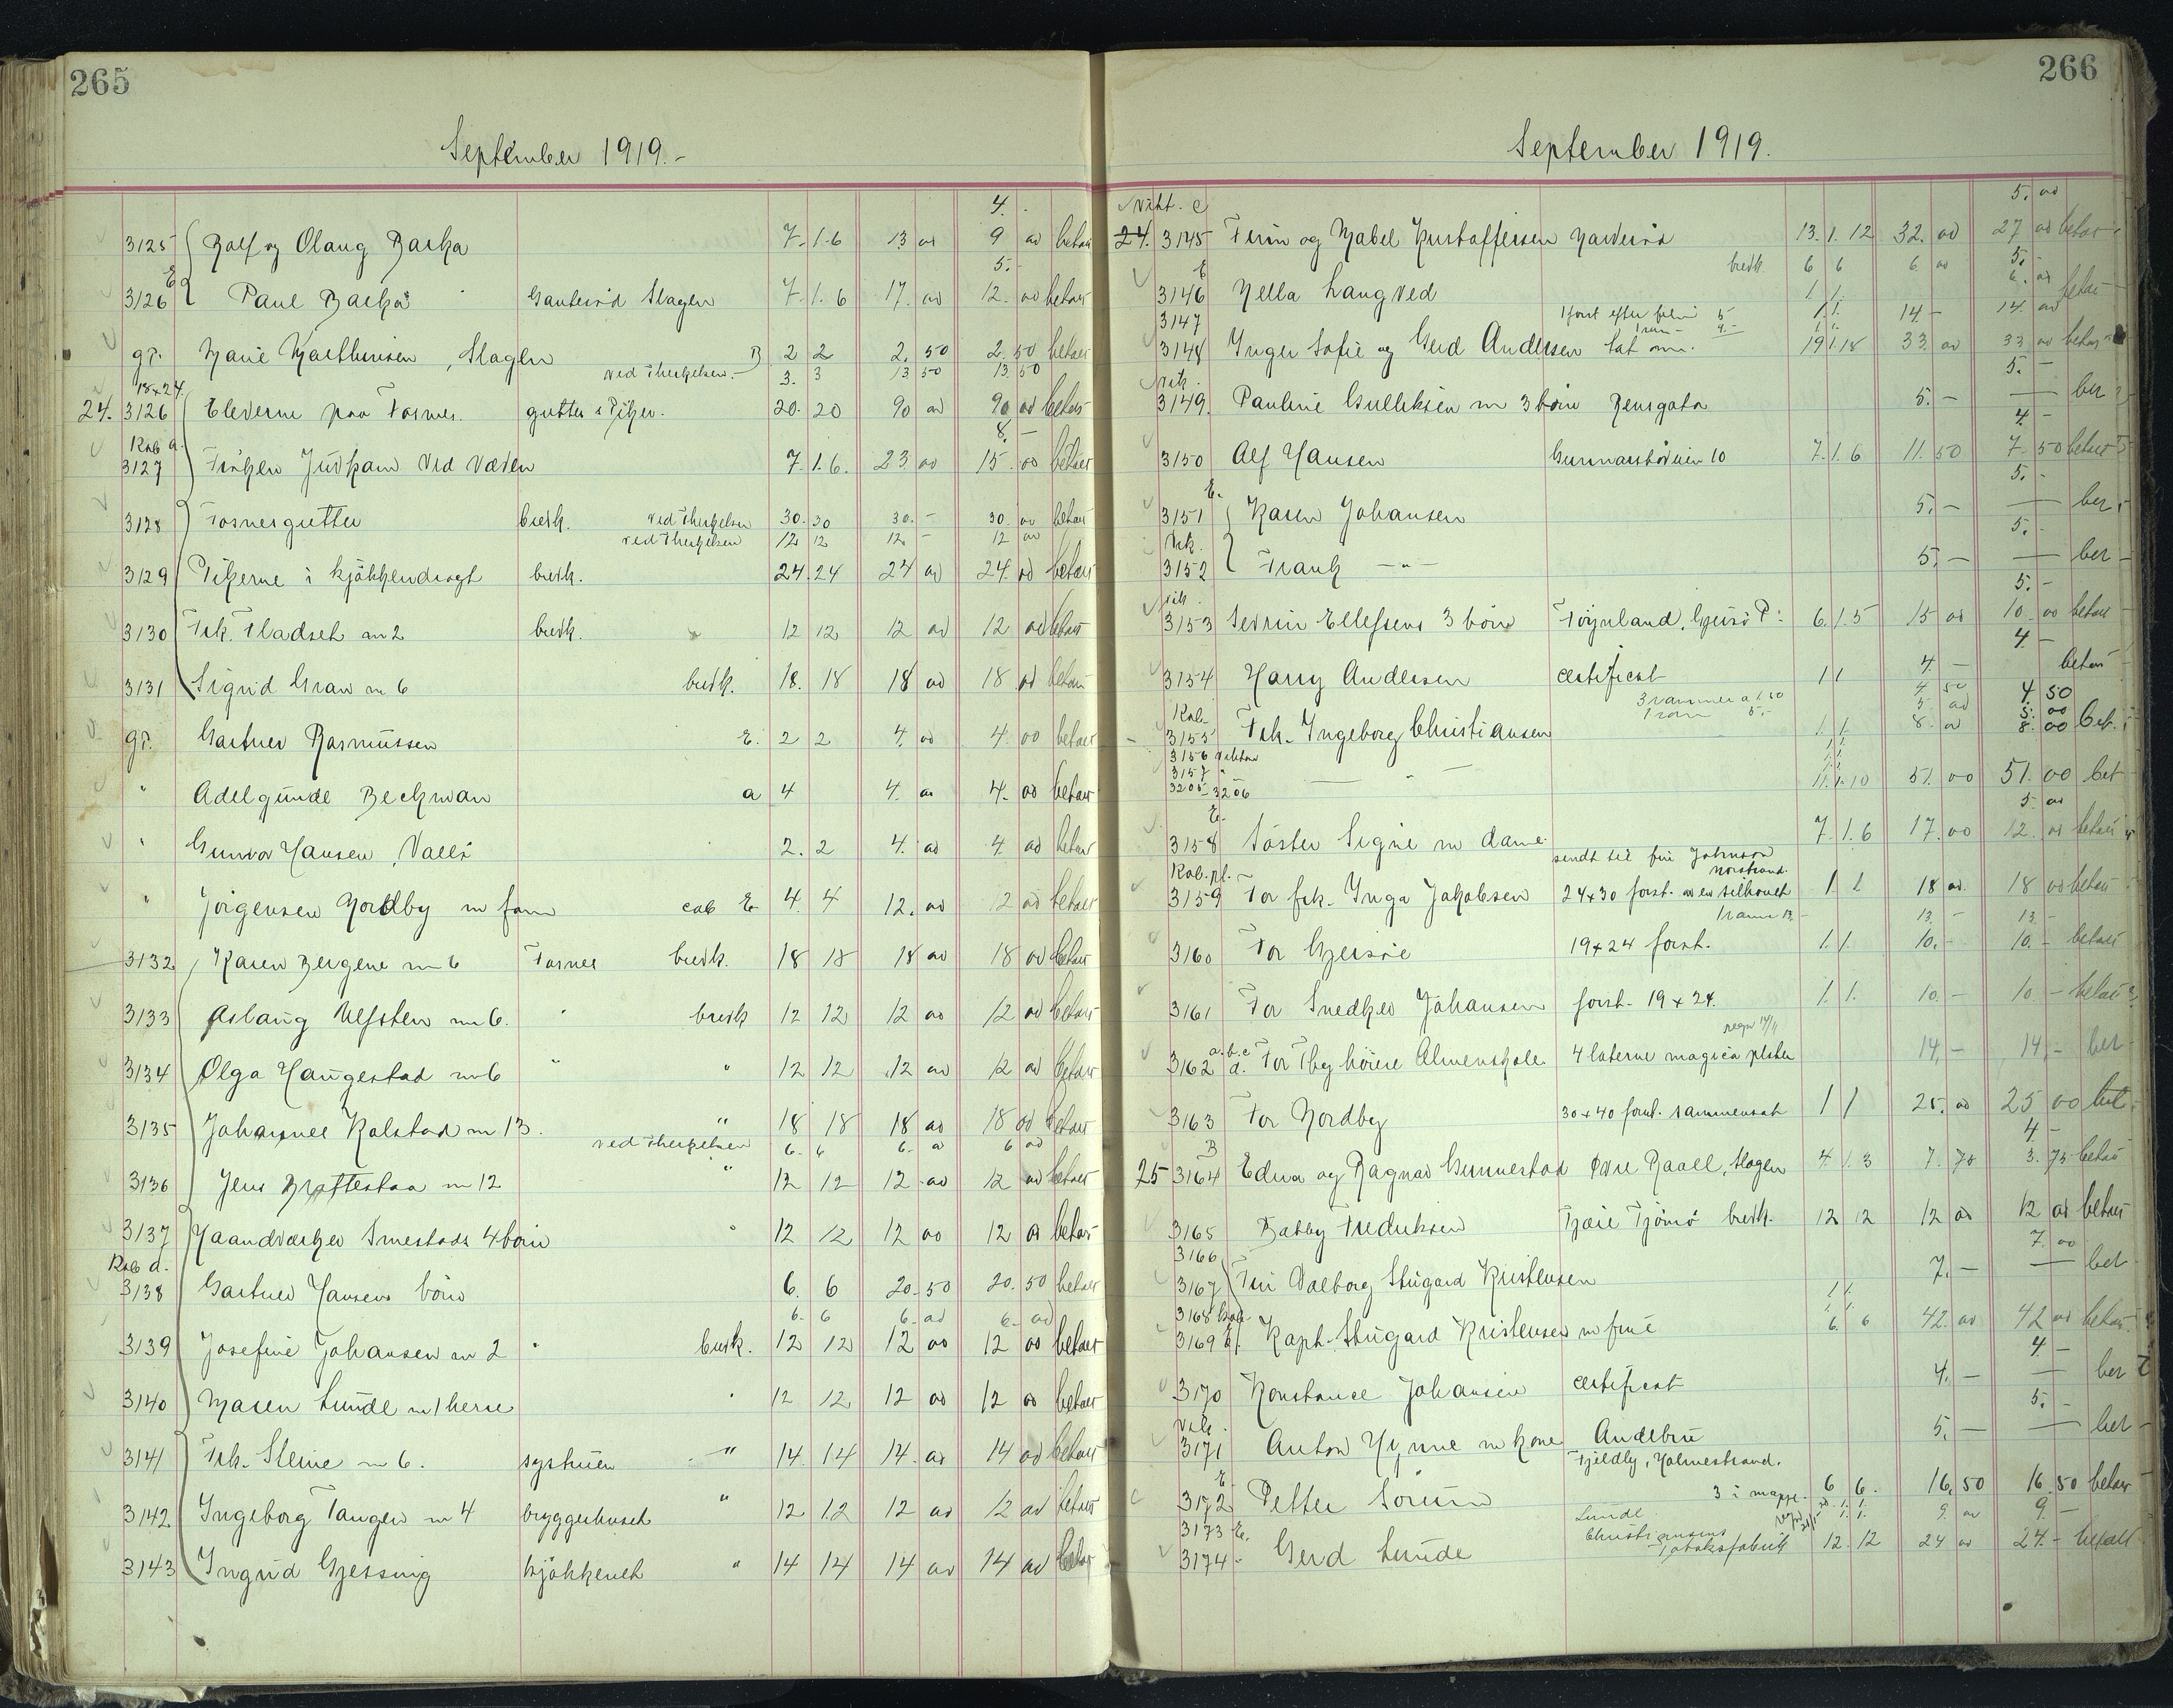 265
September 1919.-
4. -
3125 Rolf og Olaug Bakka 7. 1. 6 13 00 9 00 betalt
E 5. -
3126 Paul Bakka Slagen 7. 1. 6 17. 00 12. 00 betalt
gp. Marie Mathisen, Slagen B 2 2 2. 50 2. 50 betalt
ved Therkelsen. - 3. 3 13 50 13 50
18x24
24. 3126 Eleverne paa Fosnes. gutter & Piker. 20. 20 90 00 90 00 betalt
Kab a. 8. -
3127 Frøken ved Væven 7. 1. 6. 23. 00 15. 00 betalt
3128 Fosnesgutter bredk. ved Therkelsen 30. 30 30. - 30. 00 betalt
ved Therkelsen 12 12 12. - 12 00
3129 Pikerne i kjøkkendragt bredk. 24. 24 24 00 24. 00 betalt
3130 Frk. Fladseth m 2 bredk. 12 12 12 00 12 00 betalt
3131 Sigrid Gran m 6 bredk. 18. 18 18 00 18 00 betalt
gp. Gartner Rasmussen E. 2 2 4. 00 4. 00 betalt
" Adelgunde Beckman a 4 4. 00 4. 00 betalt
" Gunvor Hansen, Vallø 2. 2 4. 00 4. 00 betalt
" Jörgensen Nordby m fam cab E 4. 4 12. 00 12 00 betalt
3132 Karen Bergene m 6 Fosnes bredk. 18 18 18 00 18 00 betalt
3133 Aslaug m 6. " bredk 12 12 12 00 12 00 betalt
3134 Olga Haugestad m 6 " " 12 12 12 00 12 00 betalt
3135 Johannes Kolstad m 13. " 18 18 18 00 18 00 betalt
ved Therkelsen 6. 6 6. 0 6 00
3136 Jens Brattestaa m 12 " 12 12 12 00 12 00 betalt
3137 Haandverker Smestads 4 börn " 12 12 12 00 12 00 betalt
Kab d.
3138 Gartner Hansens börn 6. 6 20. 50 20. 50 betalt
6. 6 6. 00 6. 00
3139 Josefine Johansen m 2 " bredk. 12 12 12 00 12 00 betalt
3140 Maren Lunde m 1 herre " 12 12. 12 00 12 00 betalt
3141 Frk. Steine m 6. systuen " 14. 14 14. 00 14 00 betalt
3142 Ingeborg Tangen m 4 bryggerhuset " 12 12 12 00 12 00 betalt
3143 Ingrid Gjessing kjøkkenet " 14 14 14 00 14 00 betalt
266
September 1919.
visit. c 5. 00
24. 3145 Finn og Mabel Kristoffersen 13. 1. 12 32. 00 27 00 betalt
bredk. 6 6 6. 00 5. -
E 6. 00
3146 Nella Langved 1 1. betalt
3147 1 forst efter film 5 1. 1. 14 - 14. 00
1 ram - 9. -
3148 Inger Sofie og Gerd Andersen tat om. 19 1. 18 33. 00 33 00 betalt
visk. 5. -
3149. Pauline Gulliksen m 3 børn Rensgata 5. - — ber
4. -
3150 Alf Hansen 10 7. 1. 6 11. 50 7. 50 betalt
E. 5. -
3151 Karen Johansen 5. - — ber
Visk. 5. -
3152 Frank - " - 5. - — ber
visk. 5. -
3153 Severin Ellefsens 3 börn Föynland, 6. 1. 5 15 00 10. 00 betalt
4. -
3154 Harry Andersen certificat 1 1 4. - betalt
3 rammer a 1.50 4 50 4 50
Kab. 1 ram 5. - 5. 00 5. 00
3155 Frk. Ingeborg Christiansen 1. 1. 8. 0 8. 00 bet.
3156 visitkort
3157 "
3205-3206 — " — 11. 1. 10 51. 00 51. 00 bet
E. 5. 00
3158 Söster Signe m dame 7. 1. 6 17. 00 12. 00 betalt
sendt til fru Johnson
Kab. pl. - Norstrand.
3159 For frk. Inga Jakobsen 24x30 forst. av en silhouet 1. 1 18 00. 18 00 betalt
1 ram 13. - 13. - 13. -
3160 For 19x24 forst. 1. 1. 10. - 10. - betalt
3161 For Snedker Johansen forst. 19x24. 1. 1. 10. - 10 - betalt
3162 a. b. c d. For Tbg höiere Almenskole 4 laterna magica plater 14. - 14. - ber
3163 For Nordby 30x40 forst. sammensat 1 1 25. 00 25 00 bet.
B 4. -
25 3164 Edna og Ragnar Gunnestad Øvre Raaell, Slagen 4. 1. 3 7. 75 3. 75 betalt
3165 Babby Fredriksen Tjøme bredk. 12 12 12 00 12 00 betalt
3166 7. 00
3167 Fru Valborg Stugard Kristensen 7. - — ber
3168 Kab. 1 1.
3169 E. Kapt. Stugard Kristensen m frue 6. 6 42. 00 42 00 betalt
4. -
3170 Konstance Johansen certificat 4. - — ber
Visk. 5. -
3171 Anton Hynne m kone Andebu 5. - — ber
E. Fjeldby, Holmestrand.
3172 Petter Sörum 3 i mappe. 6 6. 16. 50 16. 50 betalt
Lunde 1. 1. 9. 00 9. -
3173 E. Christiansens
3174 - Gerd Lunde Tobaksfabrik 12. 12 24 00 24. - betalt